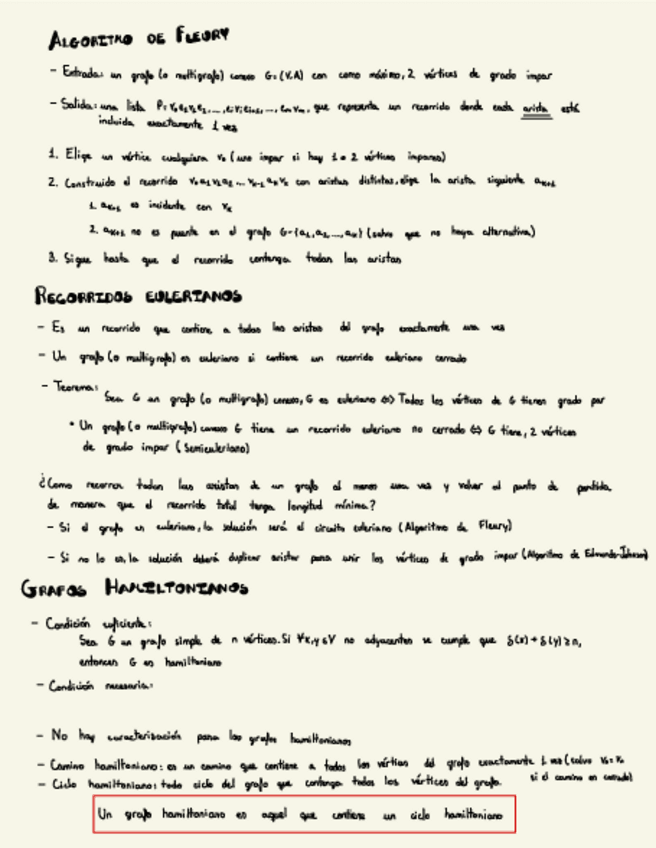 ALGORITMO DE FLEURY
- Entrada: un grafo (o multigrafo) conexo G=(V,A) con como máximo, 2 vértices de grado impar
- Salida: una lista que representa un recorrido donde cada arista está
incluida exactamente 1 vez
1. Elige un vértice cualquiera v₀ (uno impar si hay 1 o 2 vértices impares)
2. Construido el recorrido v₀a₁v₁a₂...vₖ₋₁aₖvₖ con aristas distintas, elige la arista siguiente aₖ₊₁
1. aₖ₊₁ es incidente con vₖ
2. aₖ₊₁ no es puente en el grafo G-{a₁,a₂,...,aₖ} (salvo que no haya alternativa)
3. Sigue hasta que el recorrido contenga todas las aristas
RECORRIDOS EULERIANOS
- Es un recorrido que contiene a todas las aristas del grafo exactamente una vez
- Un grafo (o multigrafo) es euleriano si contiene un recorrido euleriano cerrado
- Teorema:
Sea G un grafo (o multigrafo) conexo, G es euleriano ⇔ Todos los vértices de G tienen grado par
• Un grafo (o multigrafo) conexo G tiene un recorrido euleriano no cerrado ⇔ G tiene, 2 vértices
de grado impar (Semieuleriano)
¿Como recorrer todas las aristas de un grafo al menos una vez y volver al punto de partida
de manera que el recorrido total tenga longitud mínima?
- Si el grafo es euleriano, la solución será el circuito euleriano (Algoritmo de Fleury)
- Si no lo es, la solución deberá duplicar aristas para unir los vértices de grado impar (Algoritmo de Edmonds-Johnson)
GRAFOS HAMILTONIANOS
- Condición suficiente:
Sea G un grafo simple de n vértices. Si ∀x,y∈V no adyacentes se cumple que δ(x)+δ(y)≥n,
entonces G es hamiltoniano
- Condición necesaria:
- No hay caracterización para los grafos hamiltonianos
- Camino hamiltoniano: es un camino que contiene a todos los vértices del grafo exactamente 1 vez (salvo v₀=vₙ
si el camino es cerrado)
- Ciclo hamiltoniano: todo ciclo del grafo que contenga todos los vértices del grafo.
Un grafo hamiltoniano es aquel que contiene un ciclo hamiltoniano